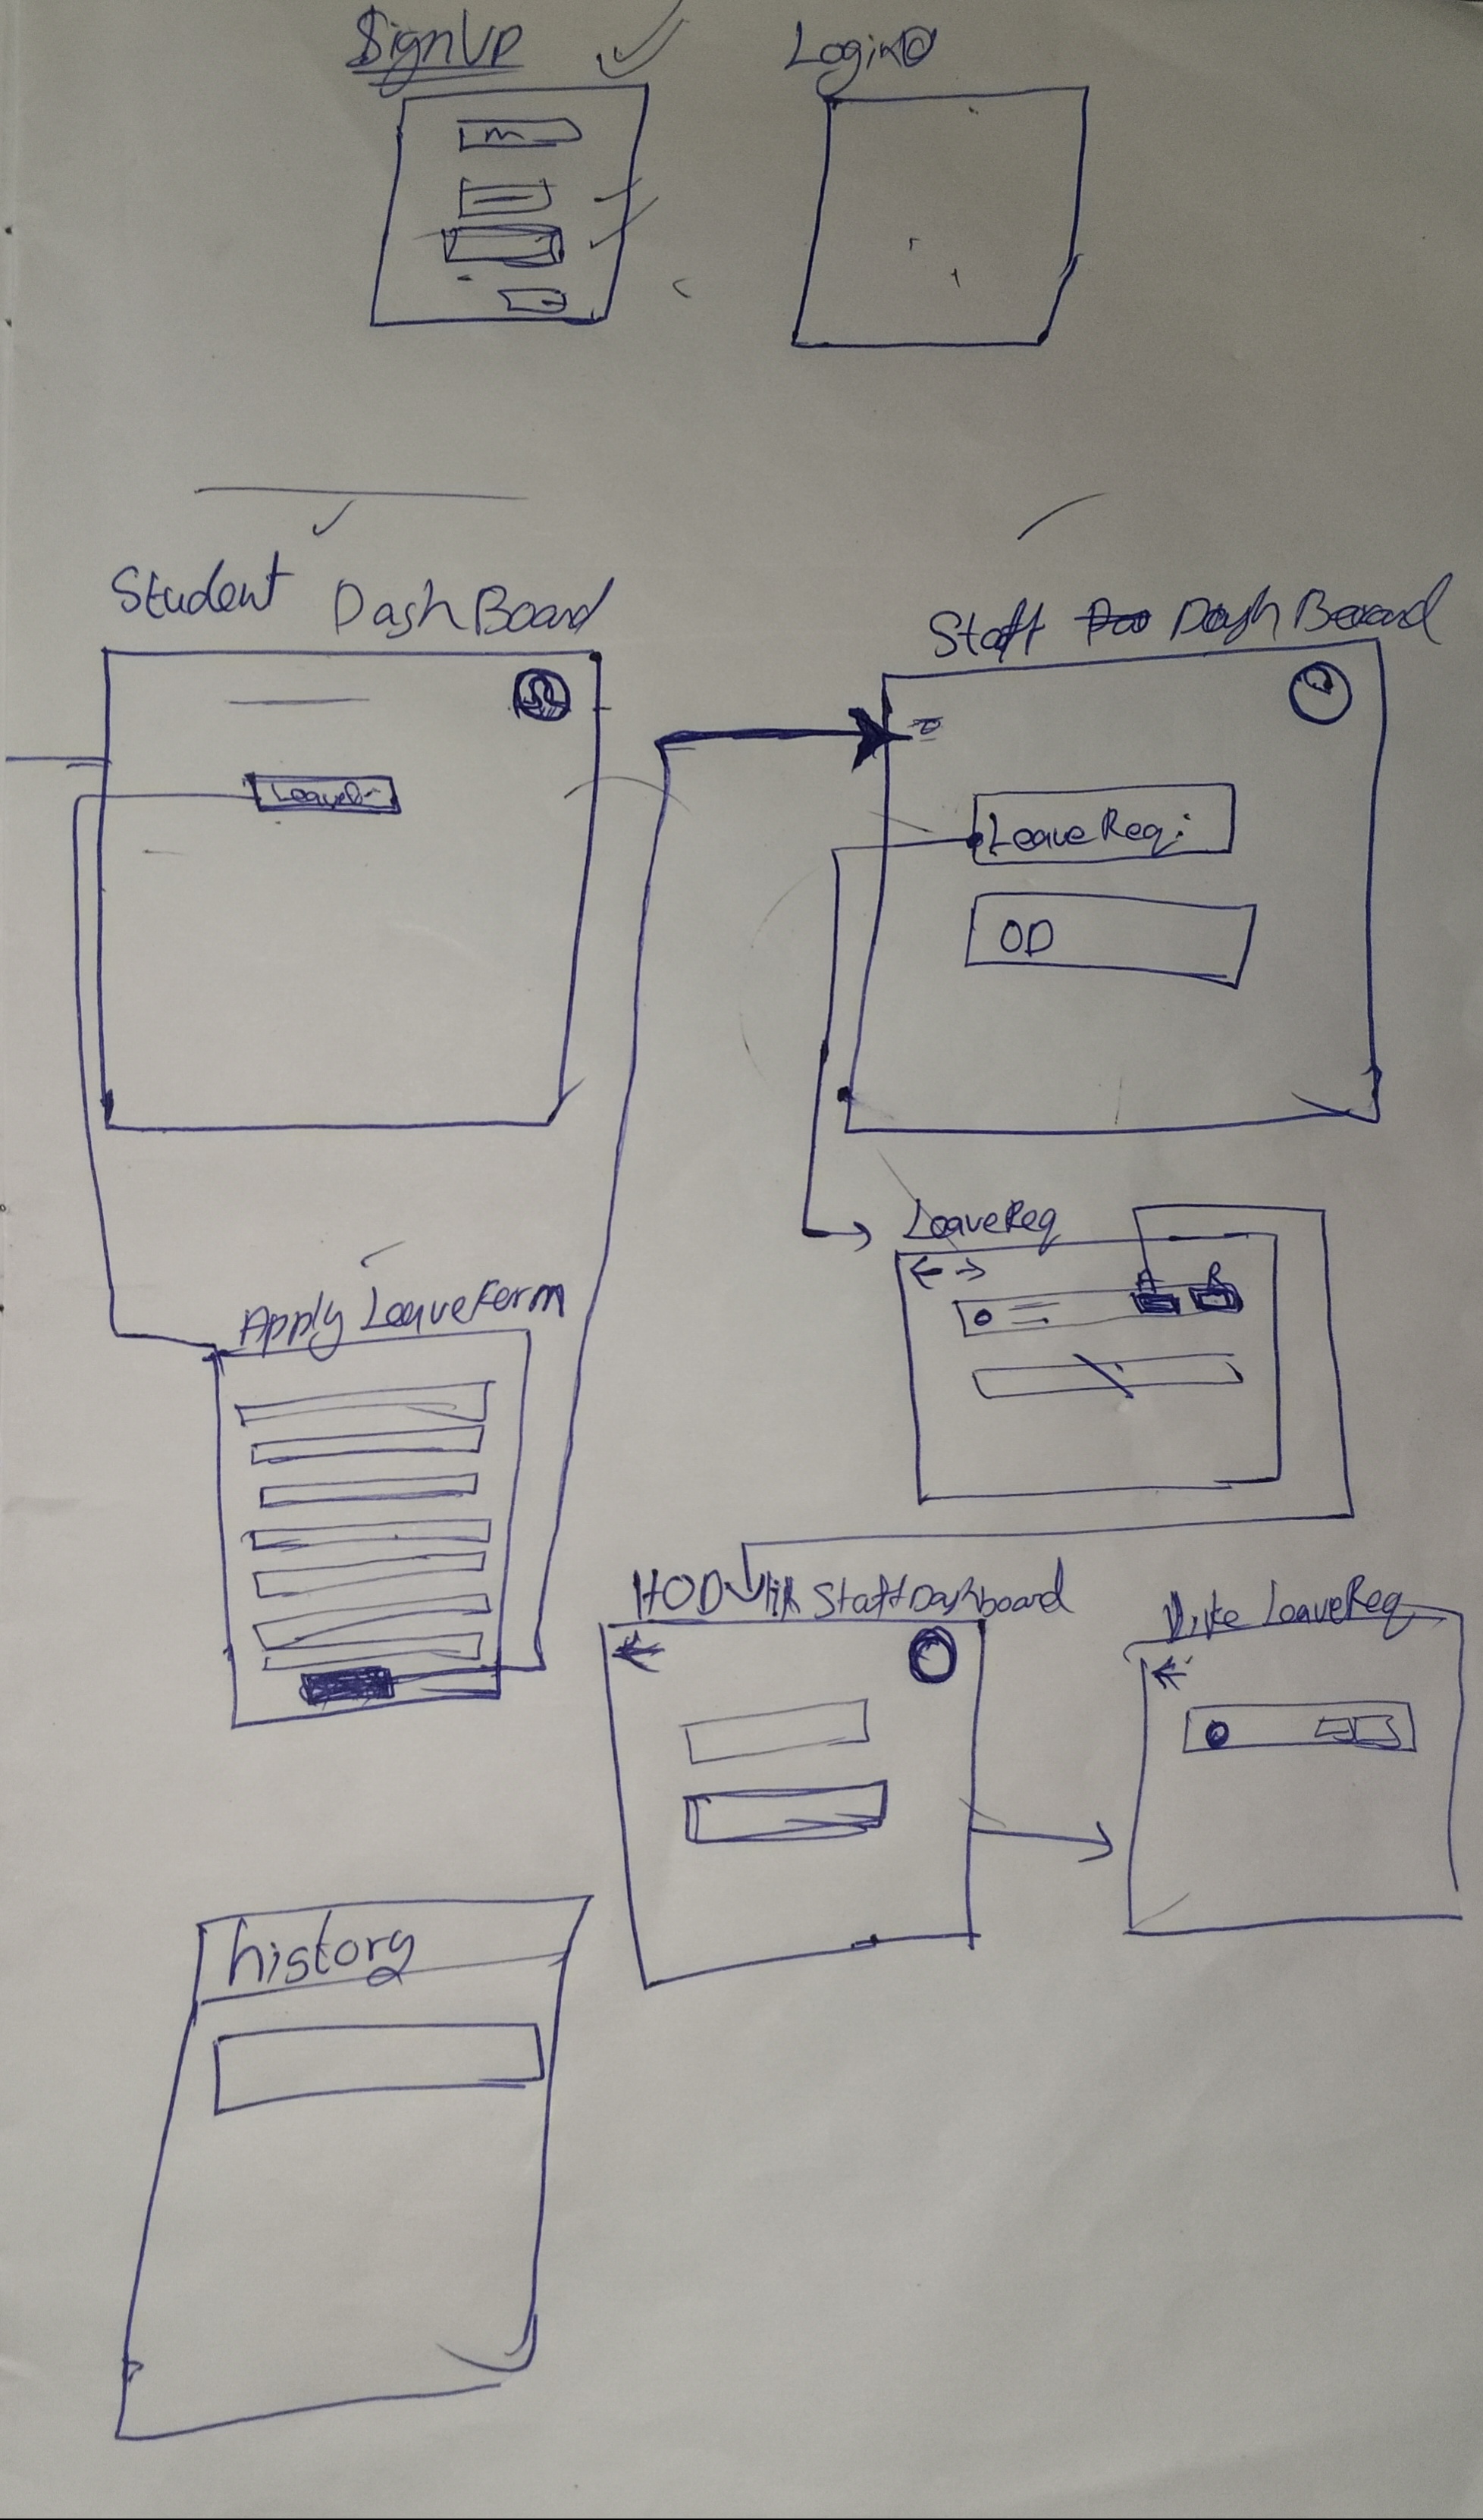 SignUp
Login
Student DashBoard
Staff DashBoard
Leave
LeaveReq:
OD
LeaveReq
A R
Apply LeaveForm
HOD StaffDashboard
LeaveReq
history